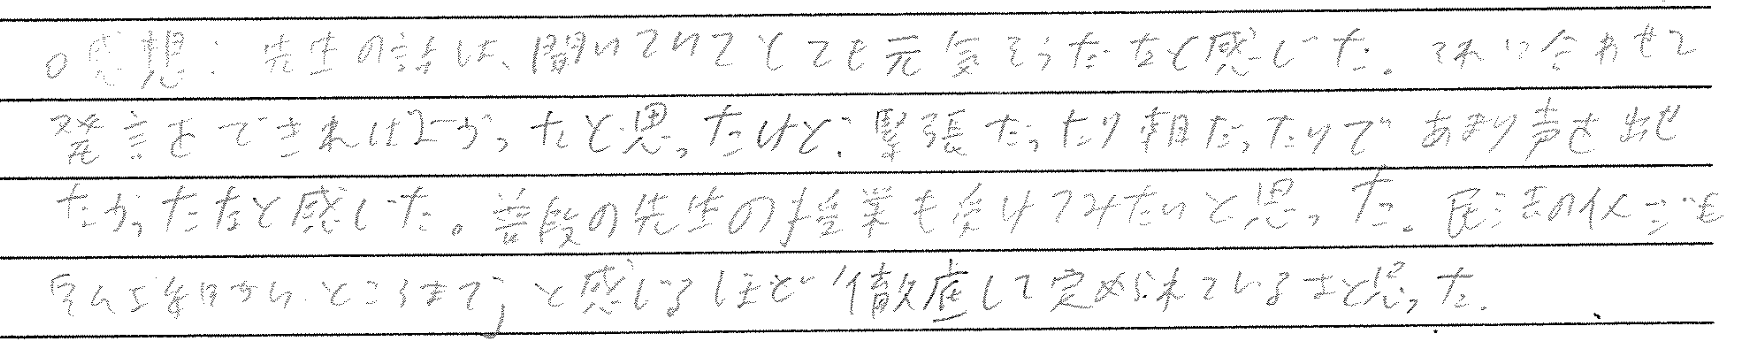 ○感想：先生の話は、聞いていてとても元気そうだなと感じた。それに合わせて
発言をできればよかったと思ったけど、緊張だったり朝だったりであまり声を出せ
なかったなと感じた。普段の先生の授業も受けてみたいと思った。民法の
細かいところまで、と感じるほど徹底して定められているなと思った。